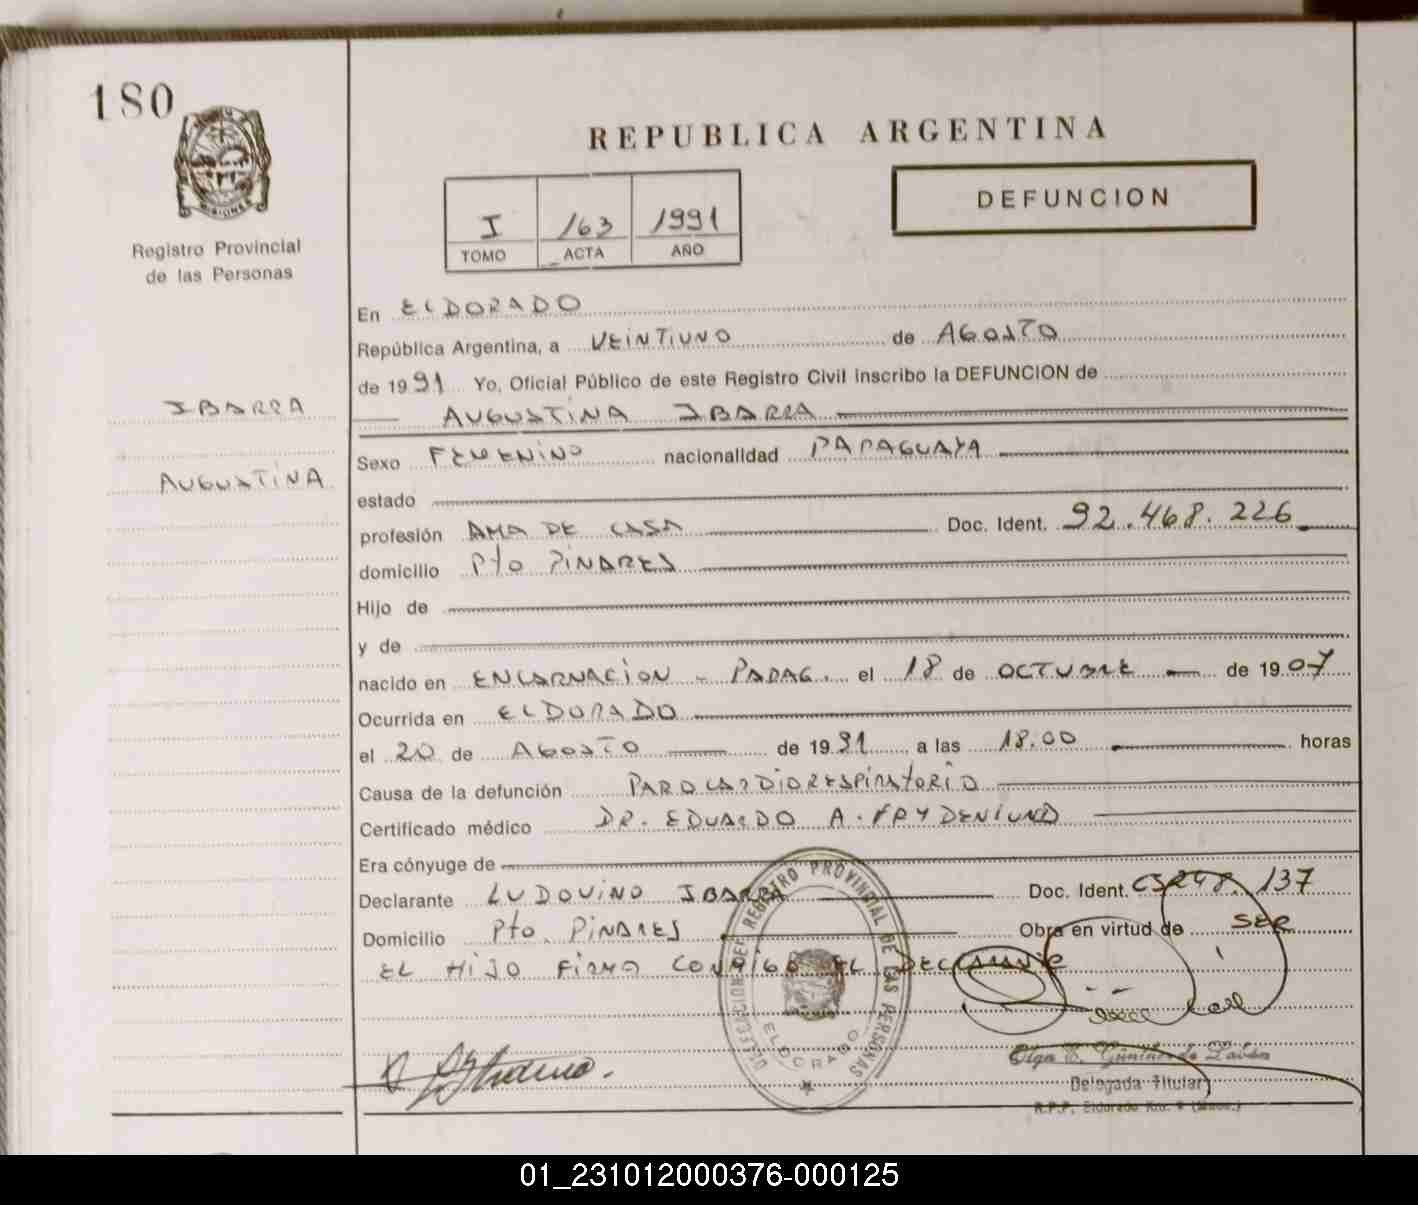 180
MISIONES
Registro Provincial
de las Personas
IBARRA
AUGUSTINA
REPUBLICA ARGENTINA
I 163 1991
TOMO ACTA AÑO
DEFUNCION
En ELDORADO
República Argentina, a VEINTIUNO de AGOSTO
de 1991 Yo, Oficial Público de este Registro Civil inscribo la DEFUNCION de
AUGUSTINA IBARRA
Sexo FEMENINO nacionalidad PARAGUAYA
estado
profesión AMA DE CASA Doc. Ident. 92.468.226
domicilio Pto PINARES
Hijo de
y de
nacido en ENCARNACION - PARAG. el 18 de OCTUBRE de 1907
Ocurrida en ELDORADO
el 20 de AGOSTO de 1991 a las 18.00 horas
Causa de la defunción PARO CARDIORESPIRATORIO
Certificado médico DR. EDUARDO A.
Era cónyuge de
Declarante LUDOVINO IBARRA Doc. Ident. 137
Domicilio Pto. PINARES Obra en virtud de SER
EL HIJO FIRMA CONMIGO EL DECLARANTE
DELEGACION DEL REGISTRO PROVINCIAL DE LAS PERSONAS
ELDORADO
Olga E.
Delegada Titular
R.P.P. Eldorado Km. 9 (Mnes.)
01_231012000376-000125